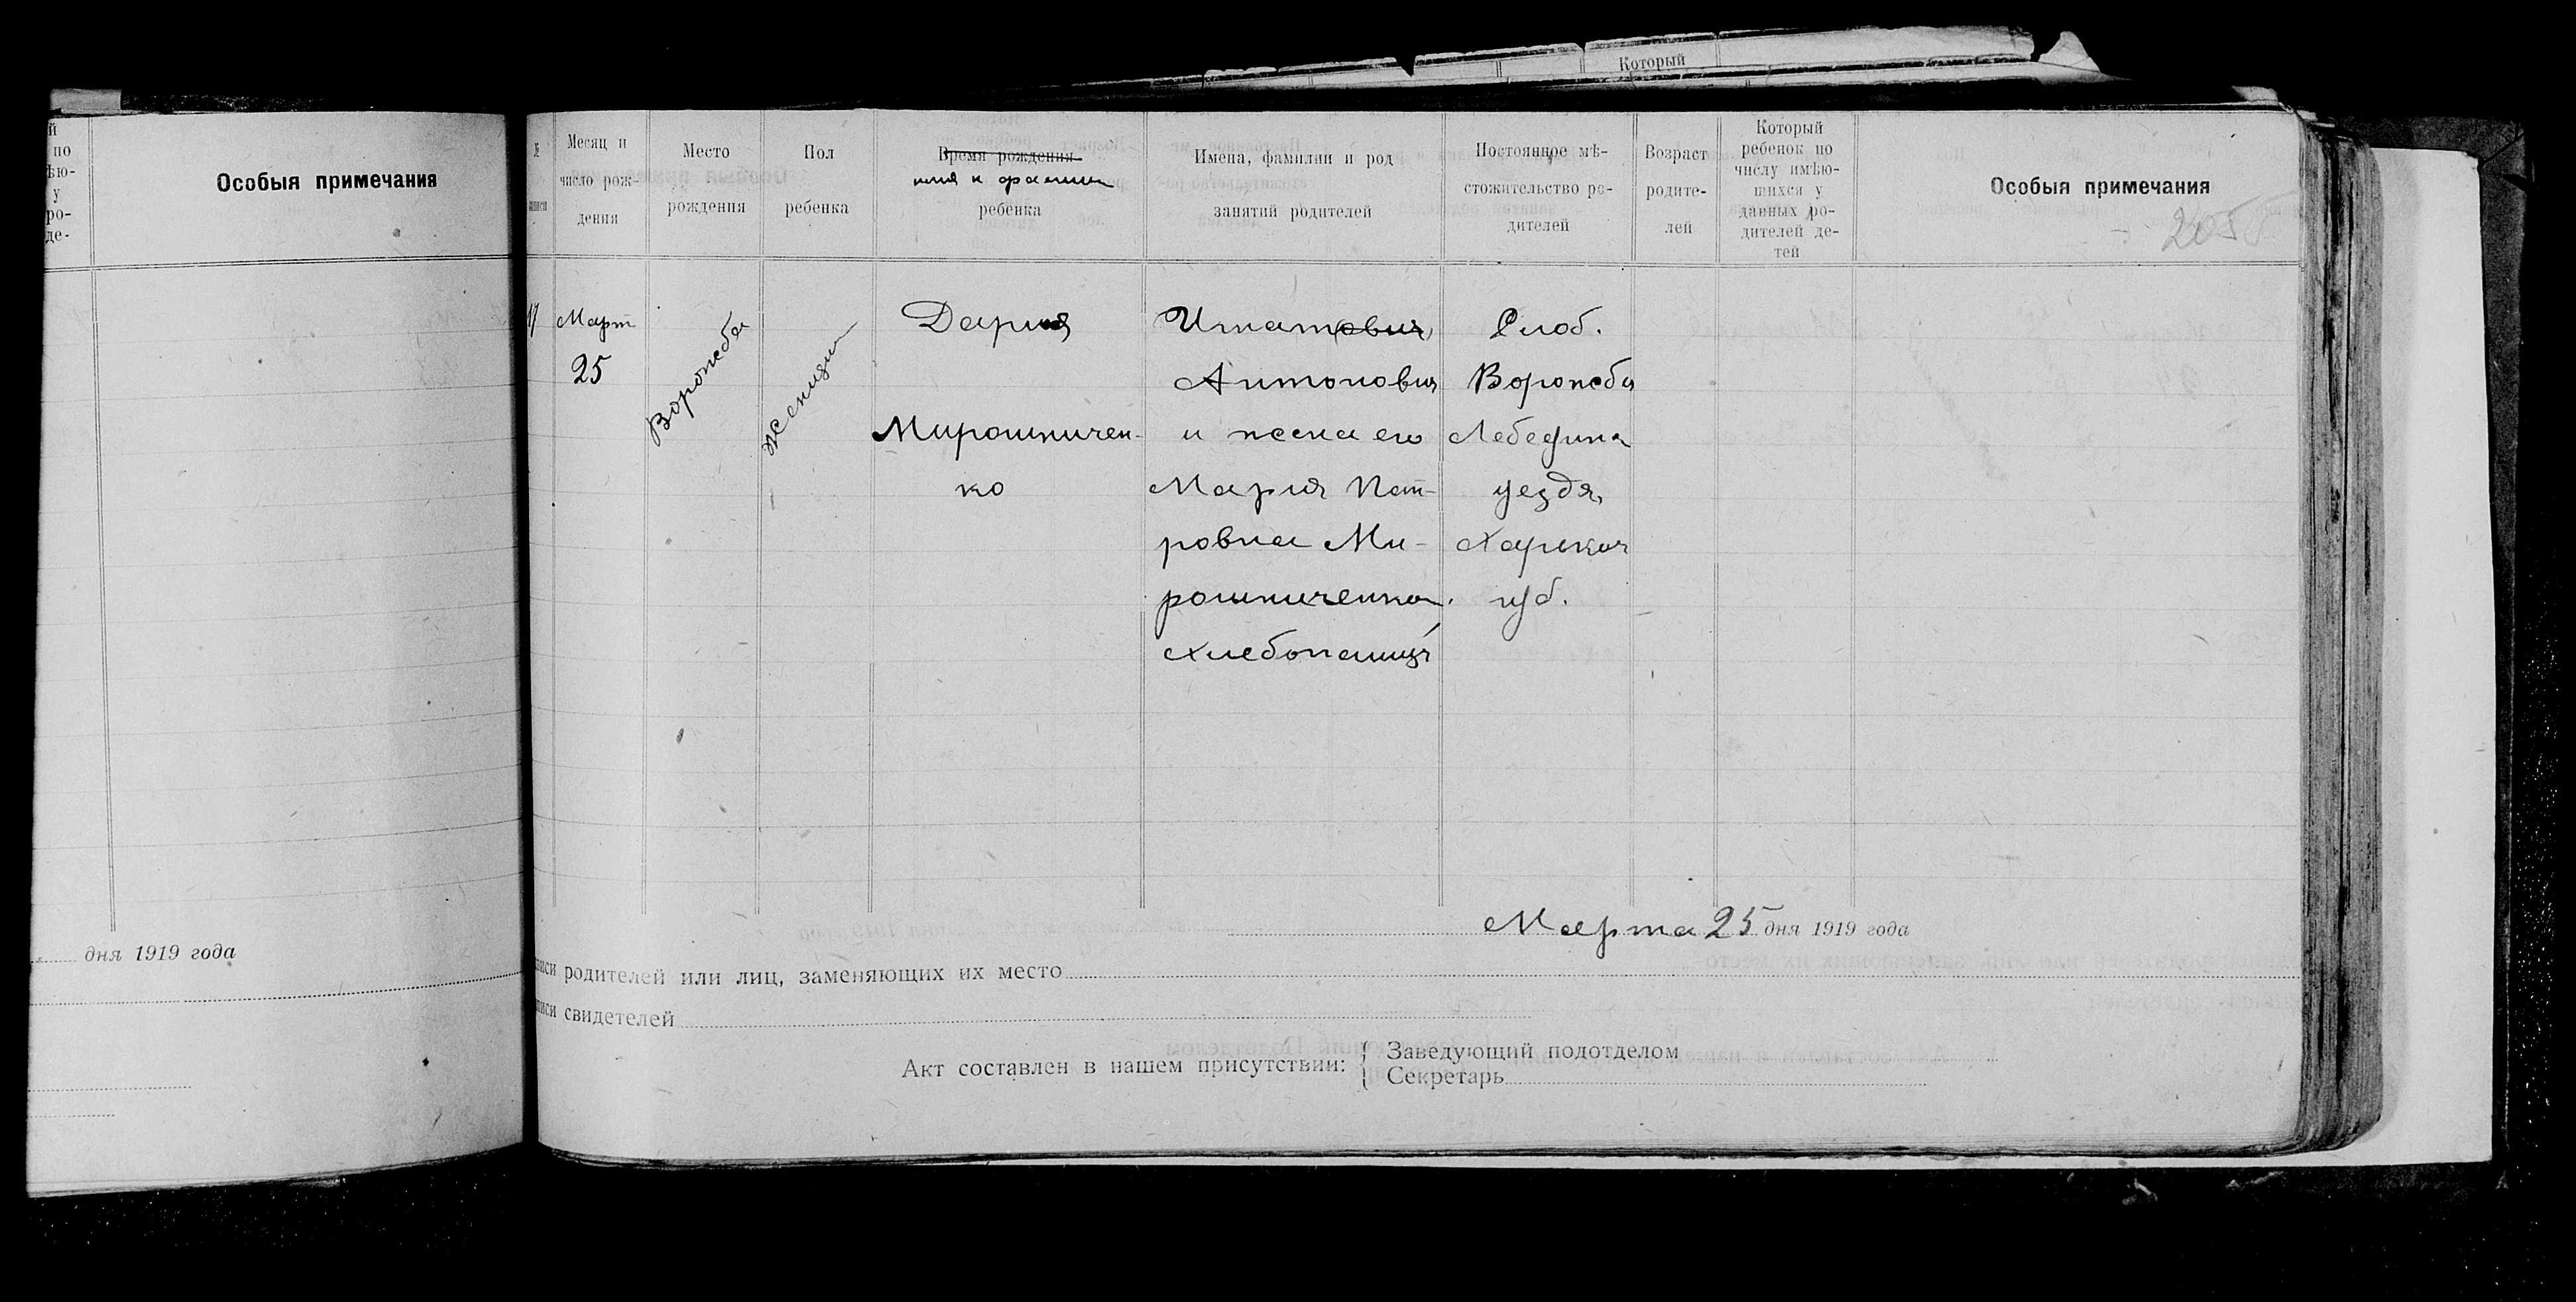 Который
й
по
ѣю-
у
ро-
де-
Особыя примечания
дня 1919 года
№
Месяц и
число рож-
дения
Место
рождения
Пол
ребенка
Время рождения
имя и фамилия
ребенка
Имена, фамилии и род
занятий родителей
Постоянное мѣ-
стожительство ро-
дителей
Возраст
родите-
лей
Который
ребенок по
числу имѣю-
шихся у
данных ро-
дителей де-
тей
Особыя примечания
205
17
Март
25
Ворожба
женщин
Дария
Мирошничен-
ко
Игнатович
Антонович
и жена его
Мария Пет-
ровна Ми-
рошниченко.
Хлебопашц
Слоб.
Ворожба
Лебедина
уезда,
Харьков
губ.
Марта 25 дня 1919 года
писи родителей или лиц, заменяющих их место
писи свидетелей
Акт составлен в нашем присутствии:
Заведующий подотделом
Секретарь